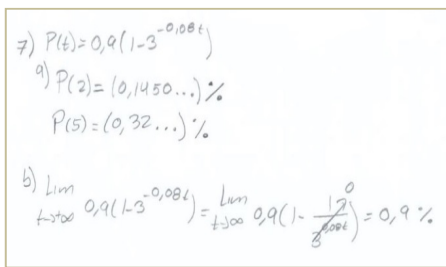 7) P(t)=0,9(1-3^-0,08t)
a) P(2)=(0,1450...)%
P(5)=(0,32...)%
b) Lim t→+∞ 0,9(1-3^-0,08t) = Lim t→∞ 0,9(1-1/3^0,08t → 0) = 0,9%